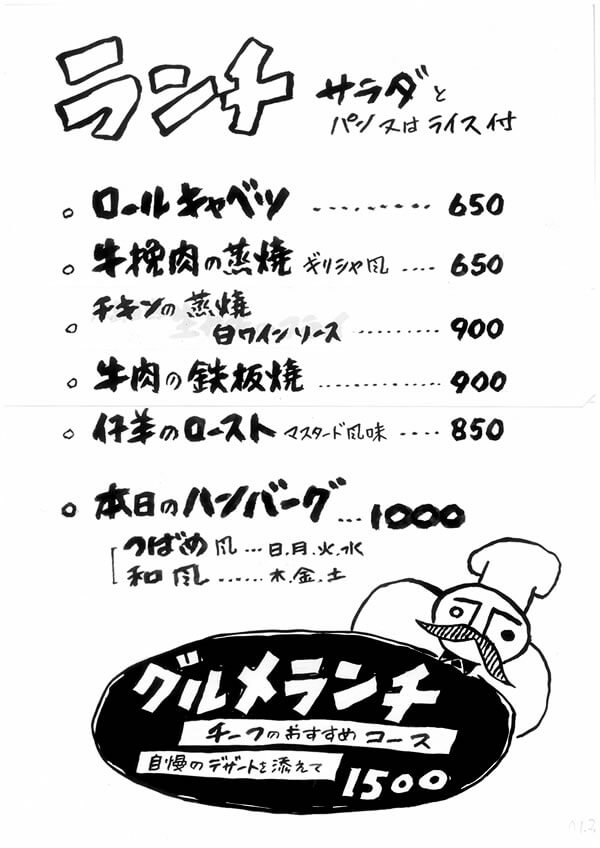 ランチ サラダと
パン又はライス付
○ ロールキャベツ ......... 650
○ 牛挽肉の蒸焼 ギリシャ風 .... 650
○ チキンの蒸焼
白ワインソース ......... 900
○ 牛肉の鉄板焼 ............ 900
○ 仔羊のロースト マスタード風味 .... 850
○ 本日のハンバーグ ... 1000
つばめ風 ... 日.月.火.水
和風 ...... 木.金.土
グルメランチ
チーフのおすすめコース
自慢のデザートを添えて
1500